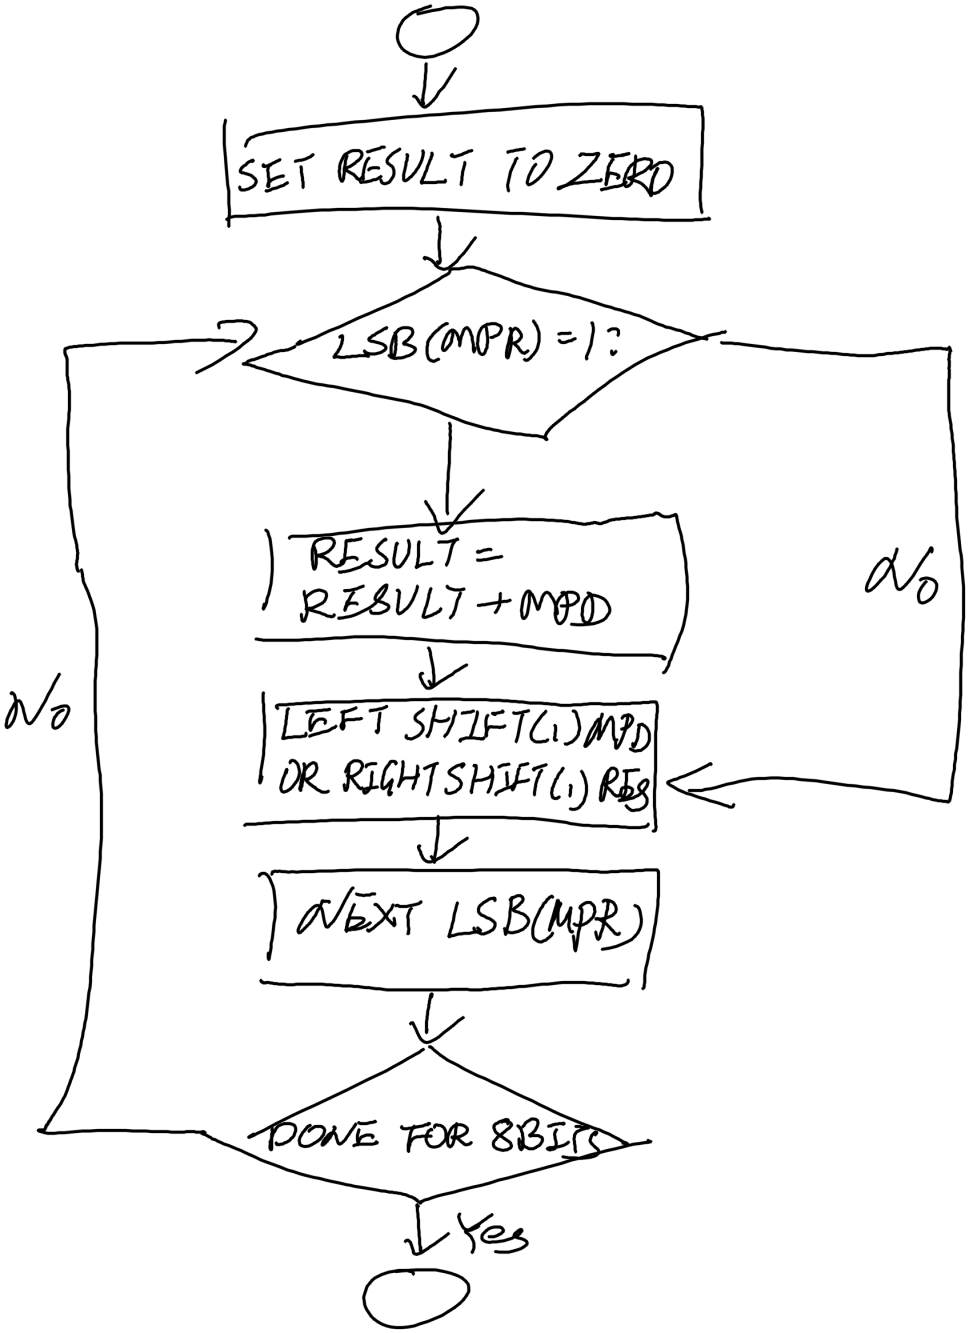 SET RESULT TO ZERO
LSB(MPR)=1?
RESULT =
RESULT + MPD
No
No
LEFT SHIFT(1) MPD
OR RIGHT SHIFT(1) RES
NEXT LSB(MPR)
DONE FOR 8BITS
Yes